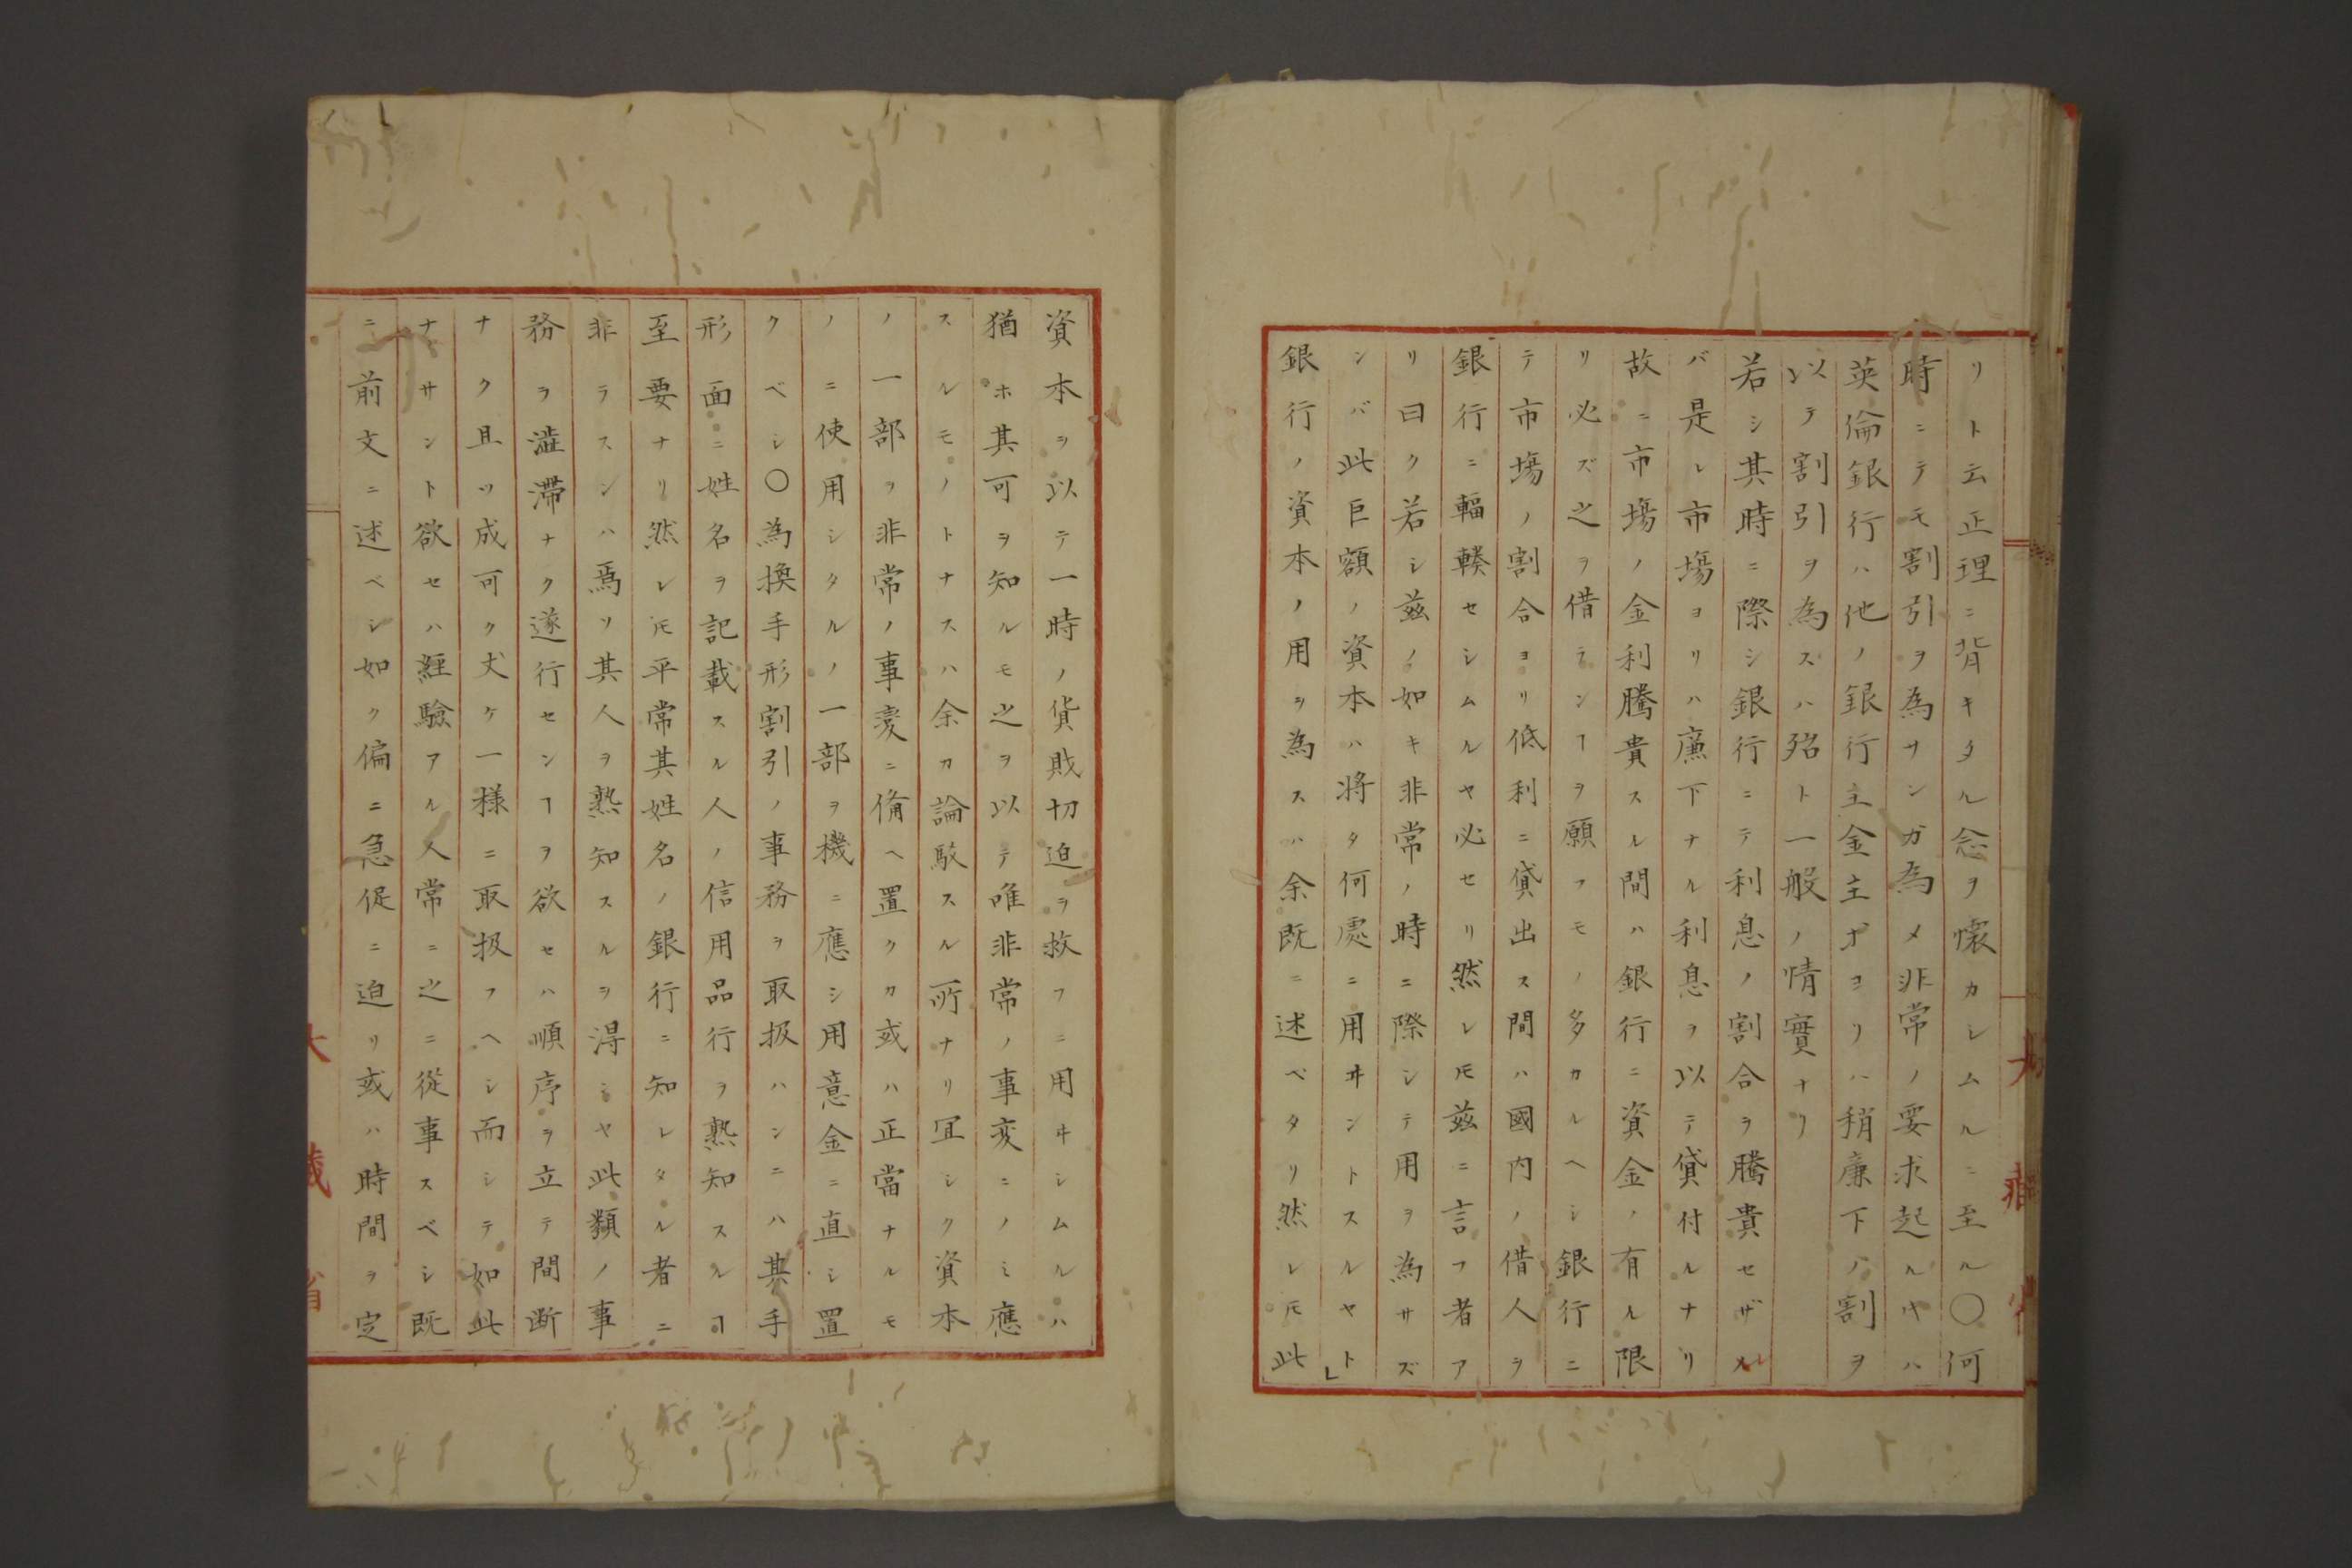 リト云正理ニ背キタル念ヲ懐カシムルニ至ル〇何
時ニテモ割引ヲ為サンガ為メ非常ノ要求起ルヤハ
英倫銀行ハ他ノ銀行主金主オヨリハ稍廉下ノ割ヲ
以テ割引ヲ為スハ殆ト一般ノ情實ナリ
若シ其時ニ際シ銀行ニテ利息ノ割合ヲ騰貴セザル
バ是レ市場ヨリハ廉下ナル利息ヲ以テ貸付ルナリ
故ニ市場ノ金利騰貴スル間ハ銀行ニ資金ノ有ル限
リ必ズ之ヲ借ランヿヲ願フモノ多カルヘシ銀行ニ
テ市場ノ割合ヨリ低利ニ貸出ス間ハ國内ノ借人ヲ
銀行ニ輻輳セシムルヤ必セリ然レ𪜈茲ニ言フ者ア
リ曰ク若シ茲ノ如キ非常ノ時ニ際シテ用ヲ為サズ
ンバ此巨額ノ資本ハ将タ何處ニ用ヰントスルヤト」
銀行ノ資本ノ用ヲ為スハ余既ニ述ベタリ然レ𪜈此
資本ヲ以テ一時ノ貨財切迫ヲ救フニ用ヰシムルハ
猶ホ其可ヲ知ルモ之ヲ以テ唯非常ノ事変ニノミ應
スルモノトナスハ余カ論駁スル所ナリ冝シク資本
ノ一部ヲ非常ノ事変ニ備ヘ置クカ或ハ正當ナルモ
ノニ使用シタルノ一部ヲ機ニ應シ用意金ニ直シ置
クベシ〇為換手形割引ノ事務ヲ取扱ハンニハ其手
形面ニ姓名ヲ記載スル人ノ信用品行ヲ熟知スルヿ
至要ナリ然レ𪜈平常其姓名ノ銀行ニ知レタル者ニ
非ラスンハ焉ソ其人ヲ熟知スルヲ得ンヤ此類ノ事
務ヲ澁滞ナク遂行センヿヲ欲セハ順序ヲ立テ間断
ナク且ツ成可ク丈ケ一様ニ取扱フヘシ而シテ如此
ナサント欲セハ経驗アル人常ニ之ニ從事スベシ既
ニ前文ニ述ベシ如ク偏ニ急促ニ迫リ或ハ時間ヲ定
大藏省